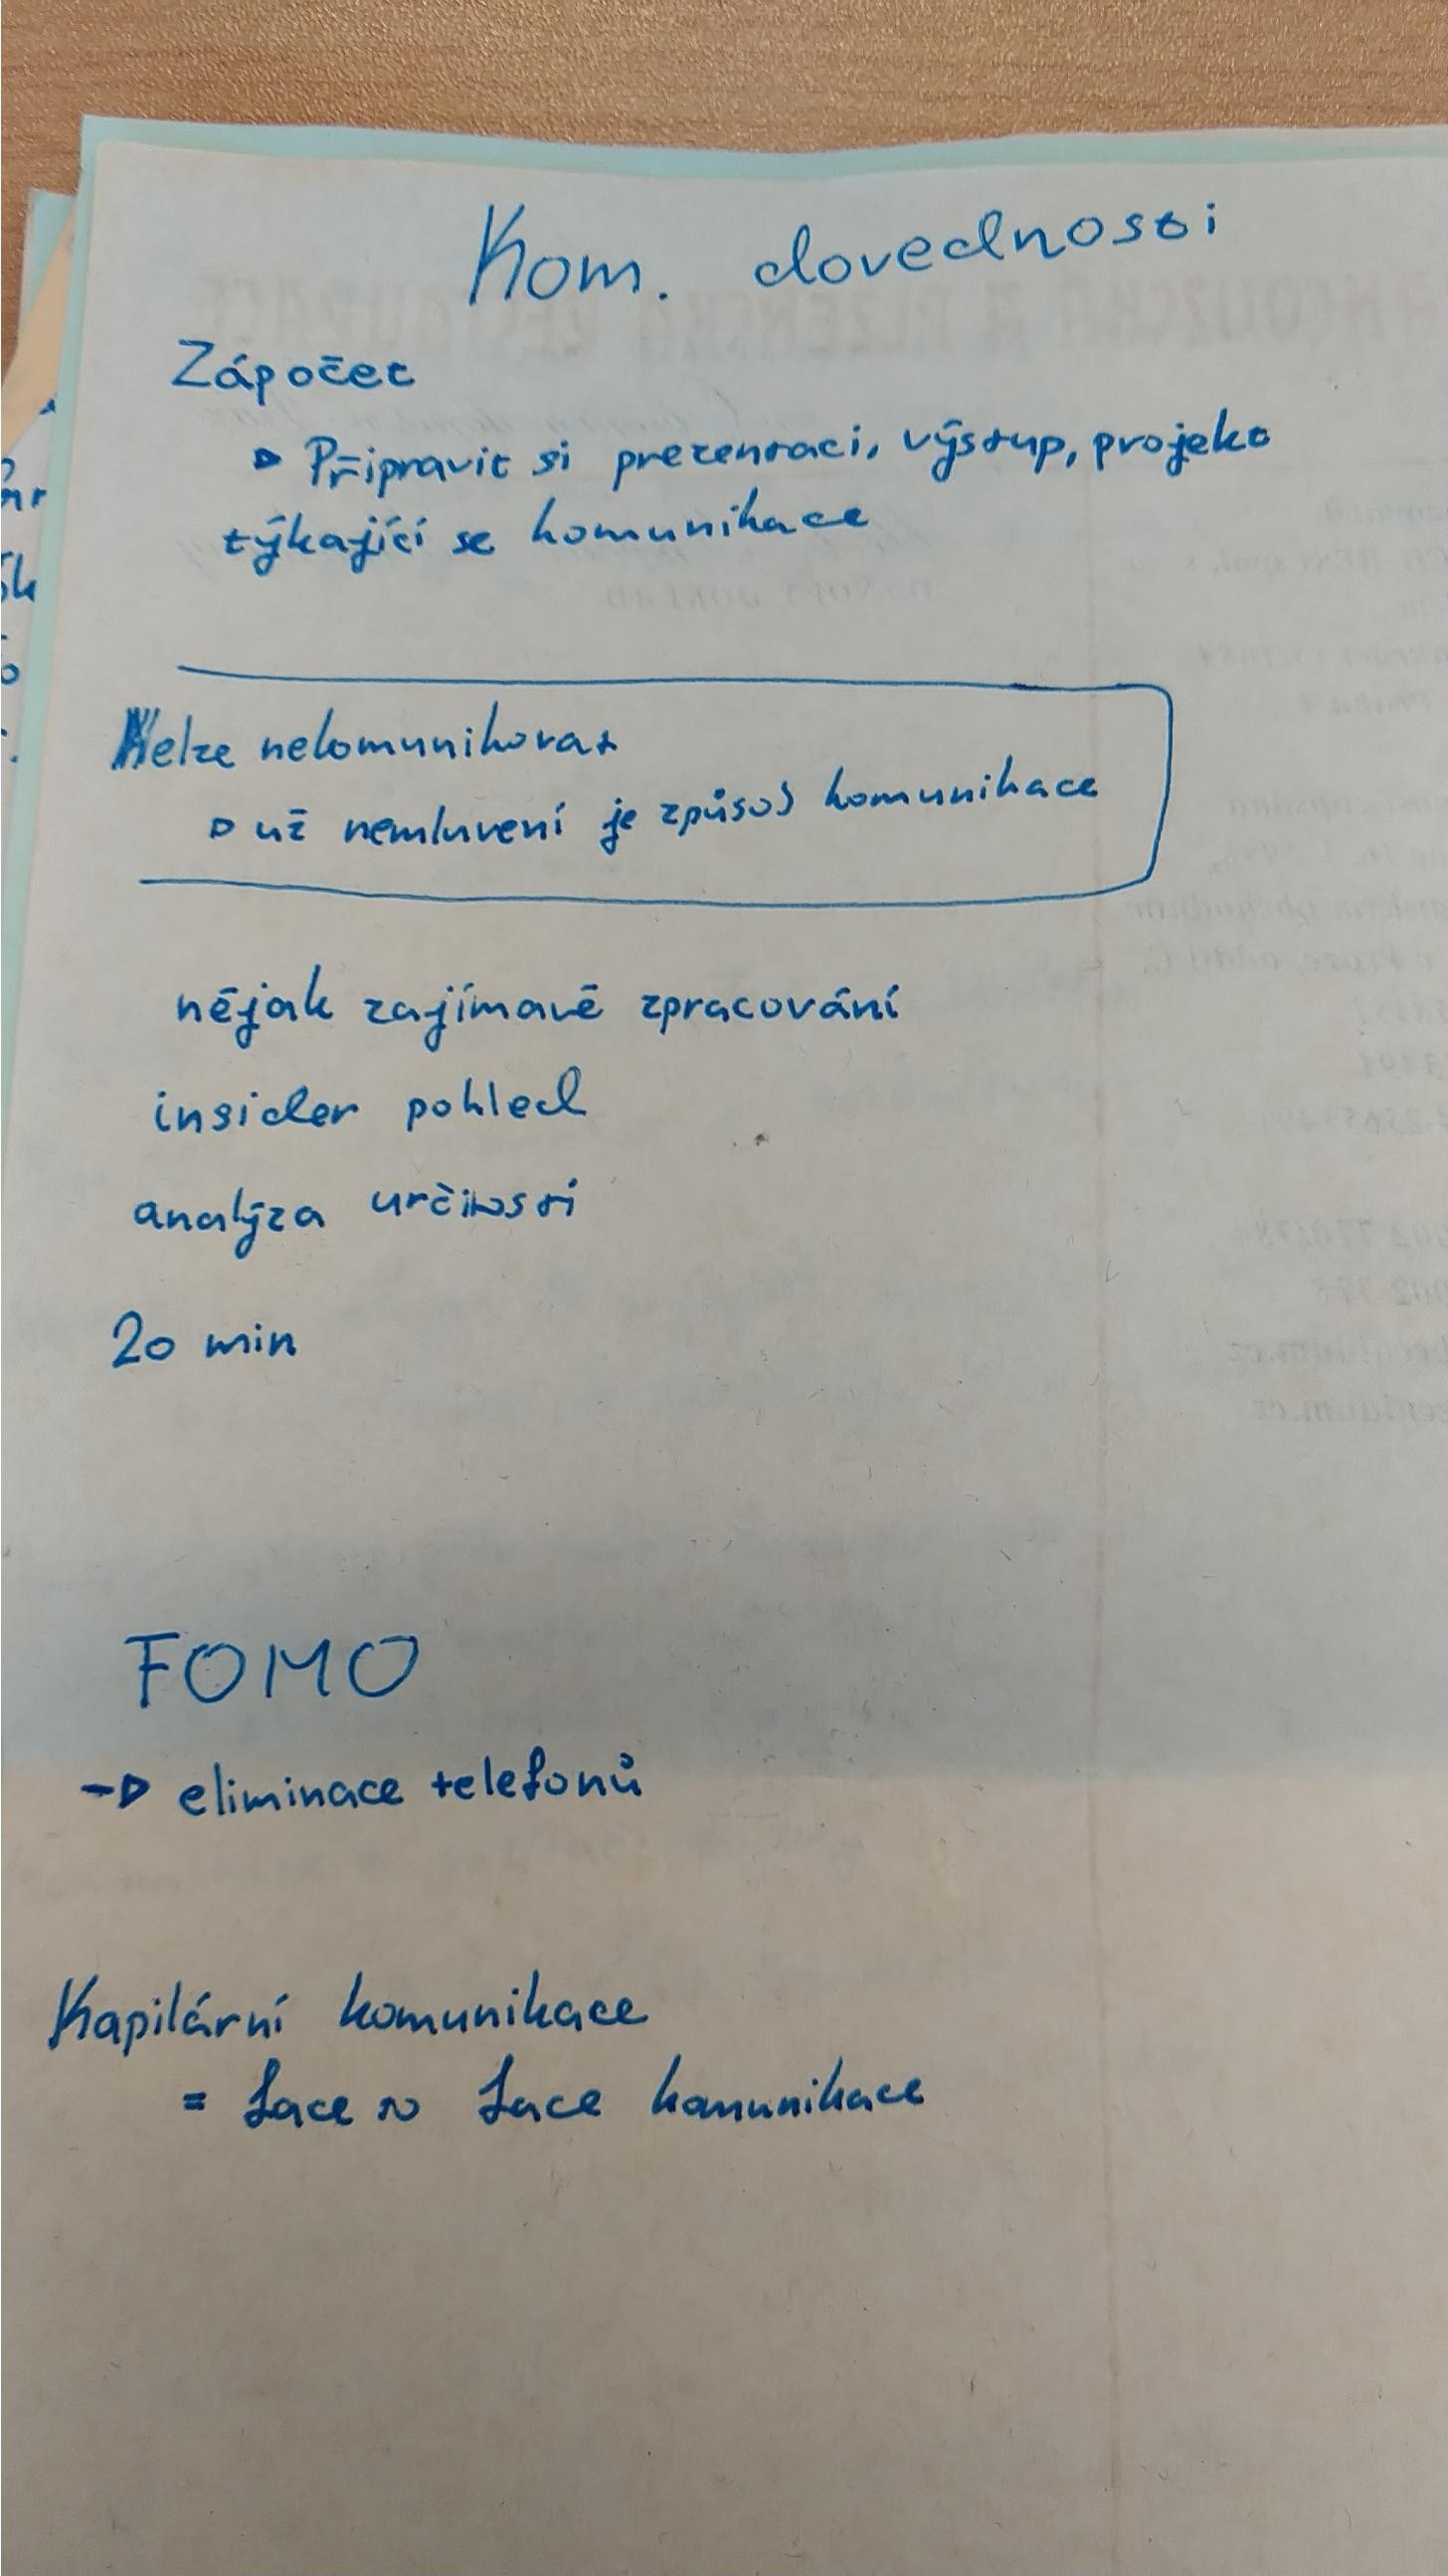 Kom. dovednosti
Zápočet
▷ Připravit si prezentaci, výstup, projekt
týkající se komunikace
Nelze nekomunikovat
▷ už nemluvení je způsob komunikace
nějak zajímavě zpracování
insider pohled
analýza určitosti
20 min
FOMO
→ eliminace telefonů
Kapilární komunikace
= face ~ face komunikace